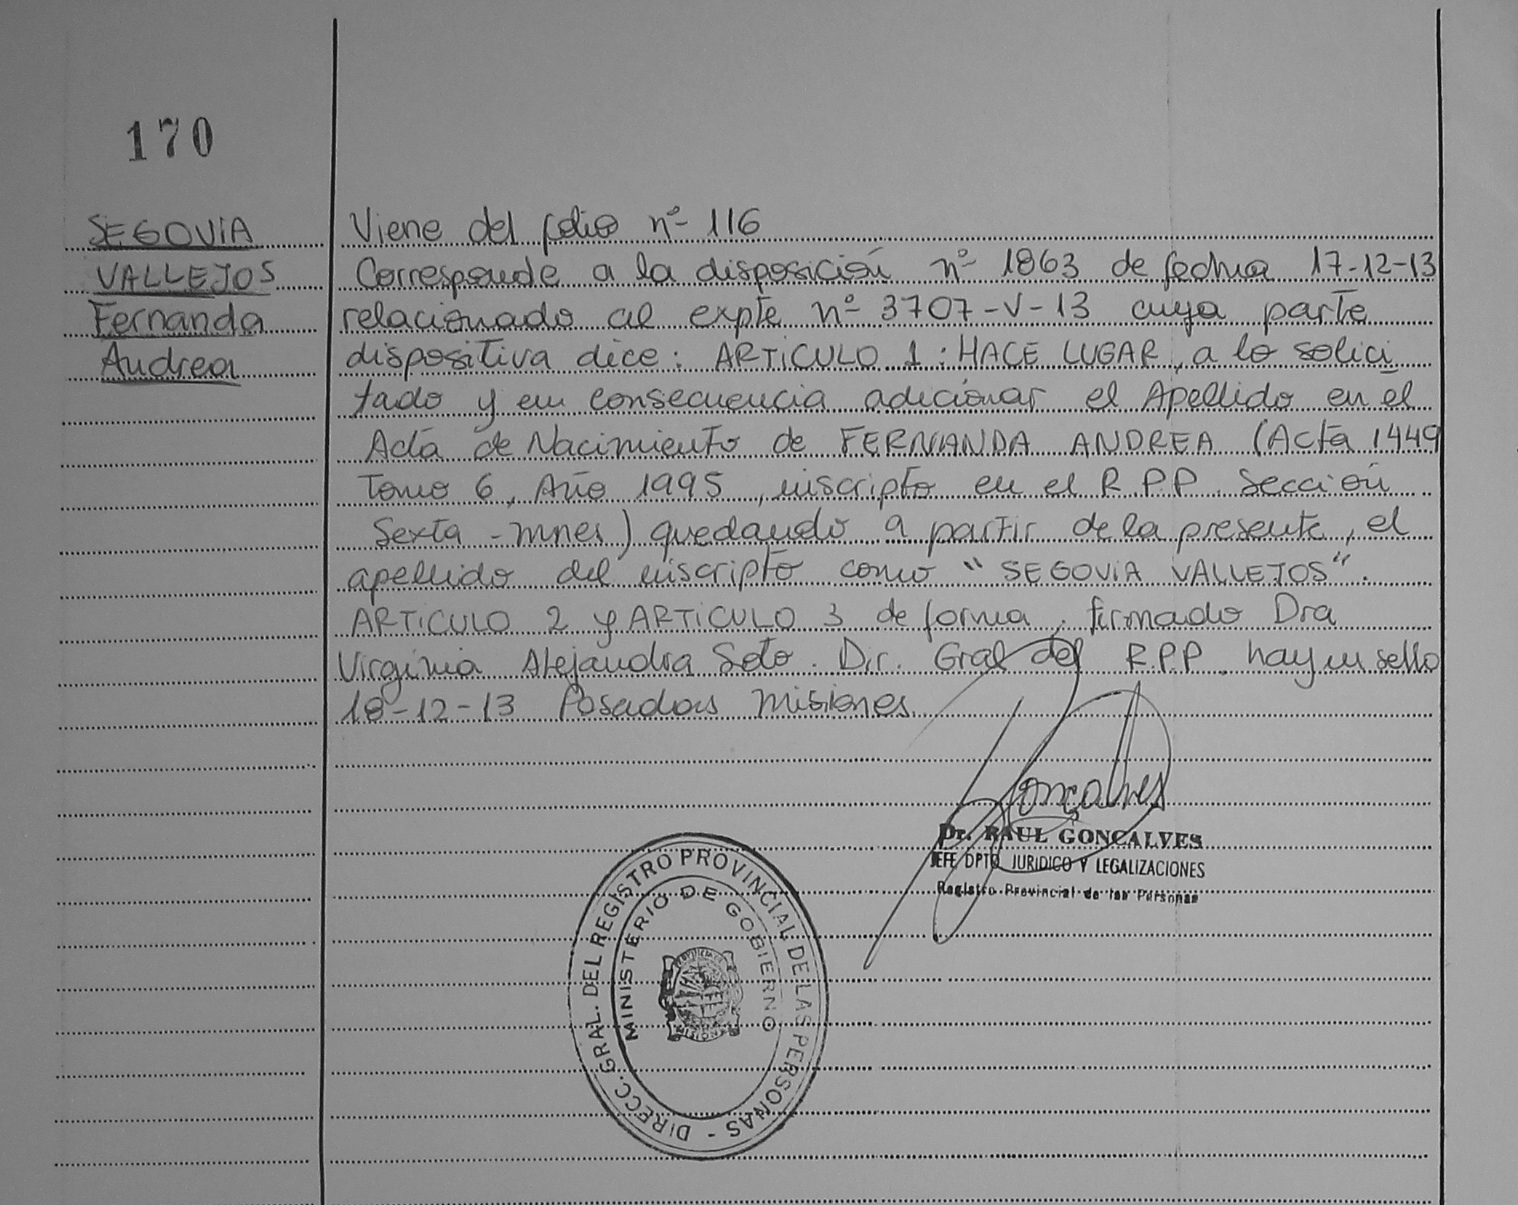 170
SEGOVIA
VALLEJOS
Fernanda
Andrea
Viene del folio nº 116
Corresponde a la disposición nº 1863 de fecha 17-12-13
relacionado al expte nº 3707-V-13 cuya parte
dispositiva dice: ARTICULO 1: HACE LUGAR, a lo solici
tado y en consecuencia adicionar el Apellido en el
Acta de Nacimiento de FERNANDA ANDREA (Acta 1449
Tomo 6, Año 1995, inscripto en el R.P.P. Sección
Sexta - mnes) quedando a partir de la presente, el
apellido del inscripto como "SEGOVIA VALLEJOS".
ARTICULO 2 y ARTICULO 3 de forma, firmado Dra
Virginia Alejandra Soto. Dir. Gral del R.P.P. hay un sello
18-12-13 Posadas Misiones
Gonçalves
Dr. RAUL GONÇALVES
JEFE DPTO JURIDICO Y LEGALIZACIONES
Registro Provincial de las Personas
DIRECC. GRAL. DEL REGISTRO PROVINCIAL DE LAS PERSONAS -
MINISTERIO DE GOBIERNO